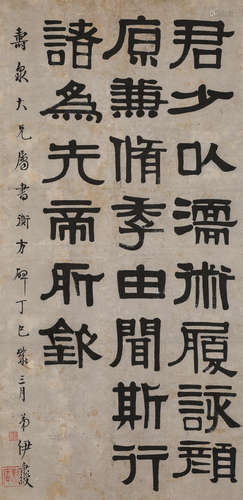 君少以濡術履詠顏
原兼脩季由聞斯行
諸為先帝所欽
壽泉大兄屬書衡方碑丁巳歲三月弟伊